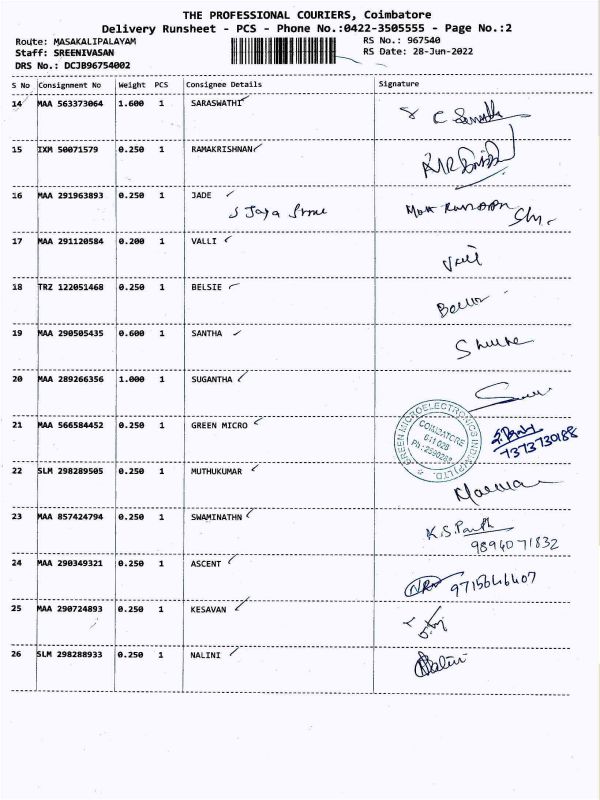 THE PROFESSIONAL COURIERS, Coimbatore
Delivery Runsheet - PCS - Phone No.:0422-3505555 - Page No.:2
Route: MASAKALIPALAYAM RS No.: 967540
Staff: SREENIVASAN RS Date: 28-Jun-2022
DRS No.: DCJB96754002
S No Consignment No Weight PCS Consignee Details Signature
14 MAA 563373064 1.600 1 SARASWATHI
15 IXM 50071579 0.250 1 RAMAKRISHNAN
16 MAA 291963893 0.250 1 JADE
17 MAA 291120584 0.200 1 VALLI
18 TRZ 122051468 0.250 1 BELSIE
19 MAA 290505435 0.600 1 SANTHA
20 MAA 289266356 1.000 1 SUGANTHA
21 MAA 566584452 0.250 1 GREEN MICRO
GREEN MICROELECTRONICS INDIA (P) LTD.
COIMBATORE
7373730188
22 SLM 298289505 0.250 1 MUTHUKUMAR
23 MAA 857424794 0.250 1 SWAMINATHN
K.S.
9894071832
24 MAA 290349321 0.250 1 ASCENT
9715646407
25 MAA 290724893 0.250 1 KESAVAN
26 SLM 298288933 0.250 1 NALINI
Nalini